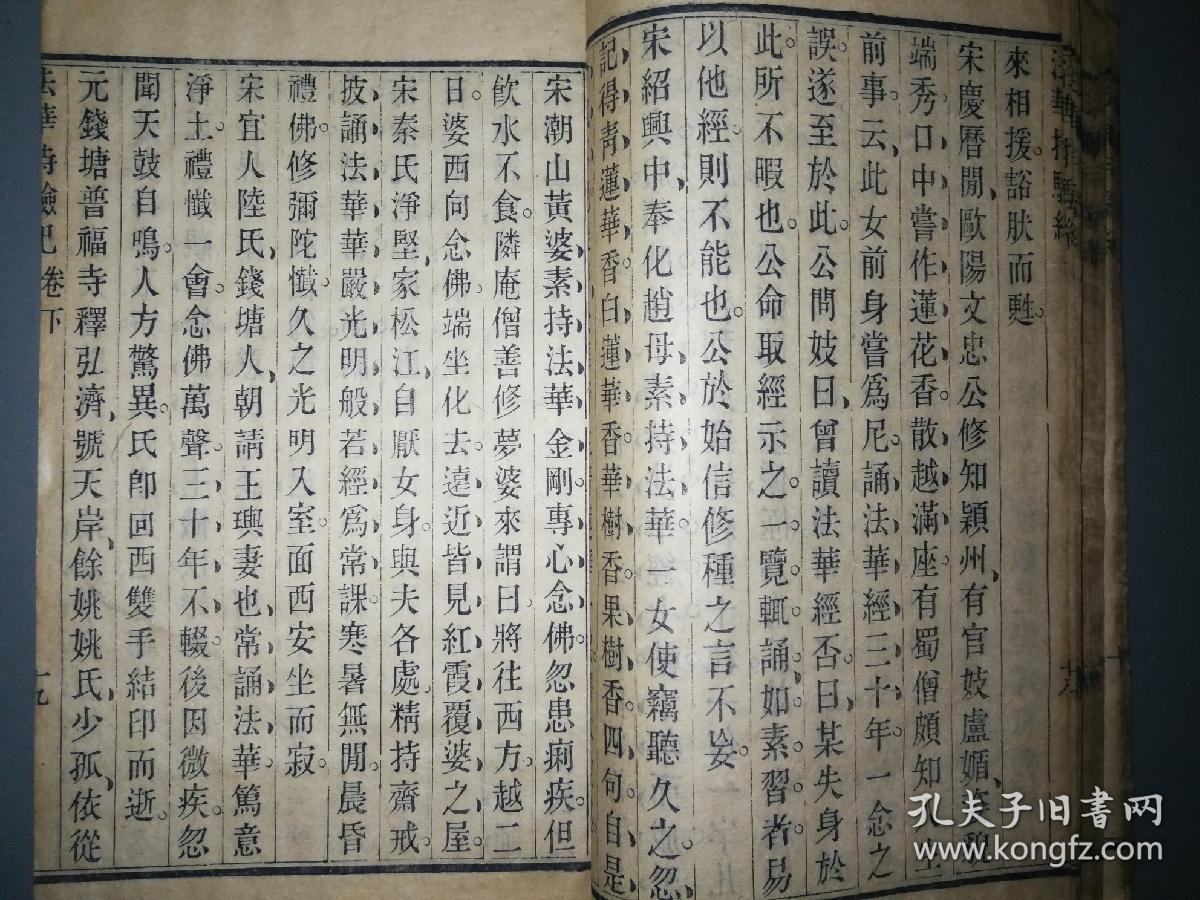 來相援。豁肰而甦。
宋慶曆閒,歐陽文忠公修知潁州,有官妓盧媚,姿貌
端秀,口中嘗作蓮花香。散越滿座。有蜀僧頗知
前事。云,此女前身嘗爲尼。誦法華經三十年。一念之
誤。遂至於此。公問妓曰,曾讀法華經否。曰,某失身於
此。所不暇也。公命取經示之。一覽輒誦。如素習。者。易
以他經則不能也。公於始信修種之言不妄。
宋紹興中,奉化趙母,素持法華。一女使竊聽久之。忽
記得靑蓮華香,白蓮華香。華樹香,果樹香。四句。自是,
宋潮山黃婆,素持法華,金剛。專心念佛。忽患痢疾。但
飮水不食。隣庵僧善修夢婆來謂曰,將往西方。越二
日。婆西向念佛。端坐化去。遠近皆見紅霞覆婆之屋。
宋秦氏淨堅,家松江,自厭女身。與夫各處。精持齋戒。
披誦法華,華嚴,光明,般若經爲常課。寒暑無閒。晨昏
禮佛。修彌陀懺。久之,光明入室。面西安坐而寂。
宋宜人陸氏,錢塘人,朝請王璵妻也,常誦法華。篤意
淨土。禮懺一會。念佛萬聲。三十年不輟。後因微疾。忽
聞天鼓自鳴。人方驚異。氏卽回西雙手結印而逝。
元錢塘普福寺釋弘濟,號天岸,餘姚姚氏,少孤,依從
法華持驗紀卷下
十九
孔夫子旧書网
www.kongfz.com